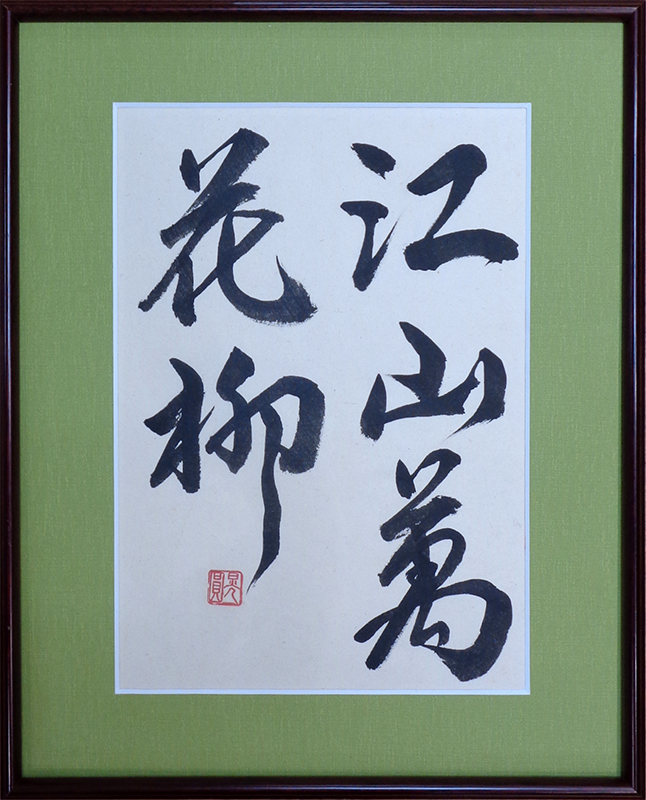 江山萬
花柳
晃